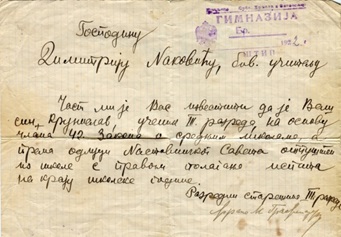 ГИМНАЗИЈА
Бр.
Господину
Димитрију Наковићу, бив. учитељу
Част ми је Вас известити да је Ваш
син, Друнослав, ученик III разреда на основу
члана 42 Закона о средњим школама, а
према одлуци Наставничког Савета отпуштен
из школе с правом полагања испита
на крају школске године.
Разредни старешина III разреда